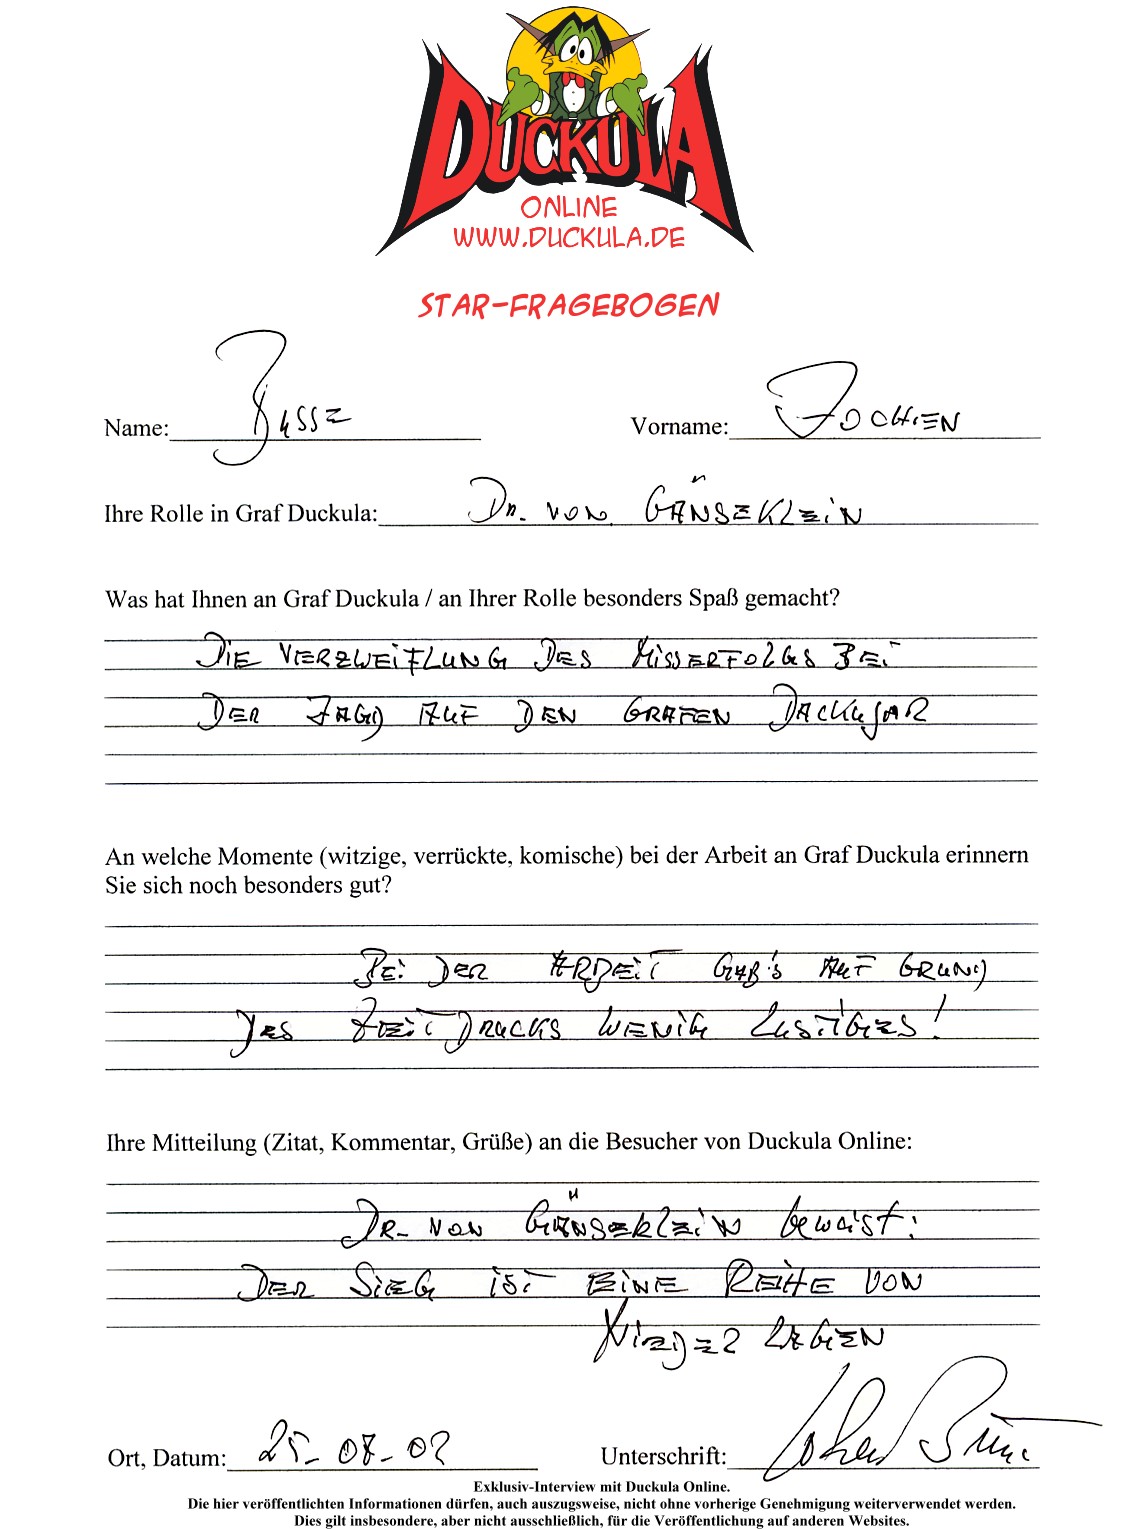 DUCKULA
ONLINE
WWW.DUCKULA.DE
STAR-FRAGEBOGEN
Name: Busse Vorname: Jochen
Ihre Rolle in Graf Duckula: Dr. von GÄNSEKLEIN
Was hat Ihnen an Graf Duckula / an Ihrer Rolle besonders Spaß gemacht?
DIE VERZWEIFLUNG DES MISSERFOLGS BEI
DER JAGD AUF DEN GRAFEN
An welche Momente (witzige, verrückte, komische) bei der Arbeit an Graf Duckula erinnern
Sie sich noch besonders gut?
BEI DER ARBEIT GAB'S AUF GRUND
DES ZEITDRUCKS WENIG LUSTIGES!
Ihre Mitteilung (Zitat, Kommentar, Grüße) an die Besucher von Duckula Online:
DR. VON GÄNSEKLEIN beweist:
DER SIEG IST EINE REIHE VON
NIEDERLAGEN
Ort, Datum: 25-07-02 Unterschrift: Jochen Busse
Exklusiv-Interview mit Duckula Online.
Die hier veröffentlichten Informationen dürfen, auch auszugsweise, nicht ohne vorherige Genehmigung weiterverwendet werden.
Dies gilt insbesondere, aber nicht ausschließlich, für die Veröffentlichung auf anderen Websites.